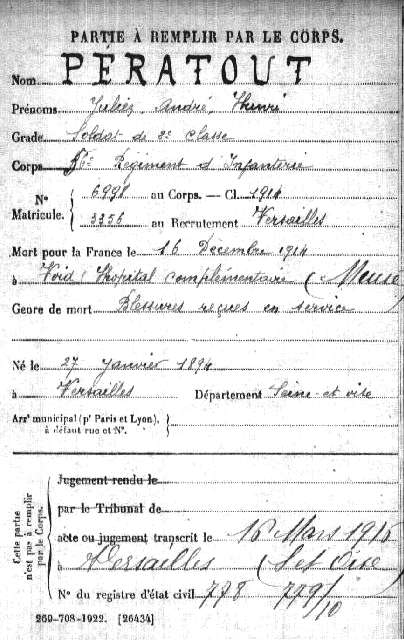 PARTIE À REMPLIR PAR LE CORPS.
Nom PÉRATOUT
Prénoms Jules, André, Henri
Grade Soldat de 2e classe
Corps Régiment d'Infanterie
N° Matricule. { 6998 au Corps. — Cl. 1914
3356 au Recrutement Versailles
Mort pour la France le 16 Décembre 1914
à Void Hopital complémentaire (Meuse)
Genre de mort Blessures reçues en service
Né le 27 Janvier 1894
à Versailles Département Seine-et-oise
Arrt municipal (pr Paris et Lyon), à défaut rue et N°. }
Cette partie n'est pas à remplir par le Corps.
Jugement rendu le
par le Tribunal de
acte ou jugement transcrit le 16 Mars 1916
à Versailles (S et Oise)
N° du registre d'état civil 778 779/10
269-708-1922. [26434]